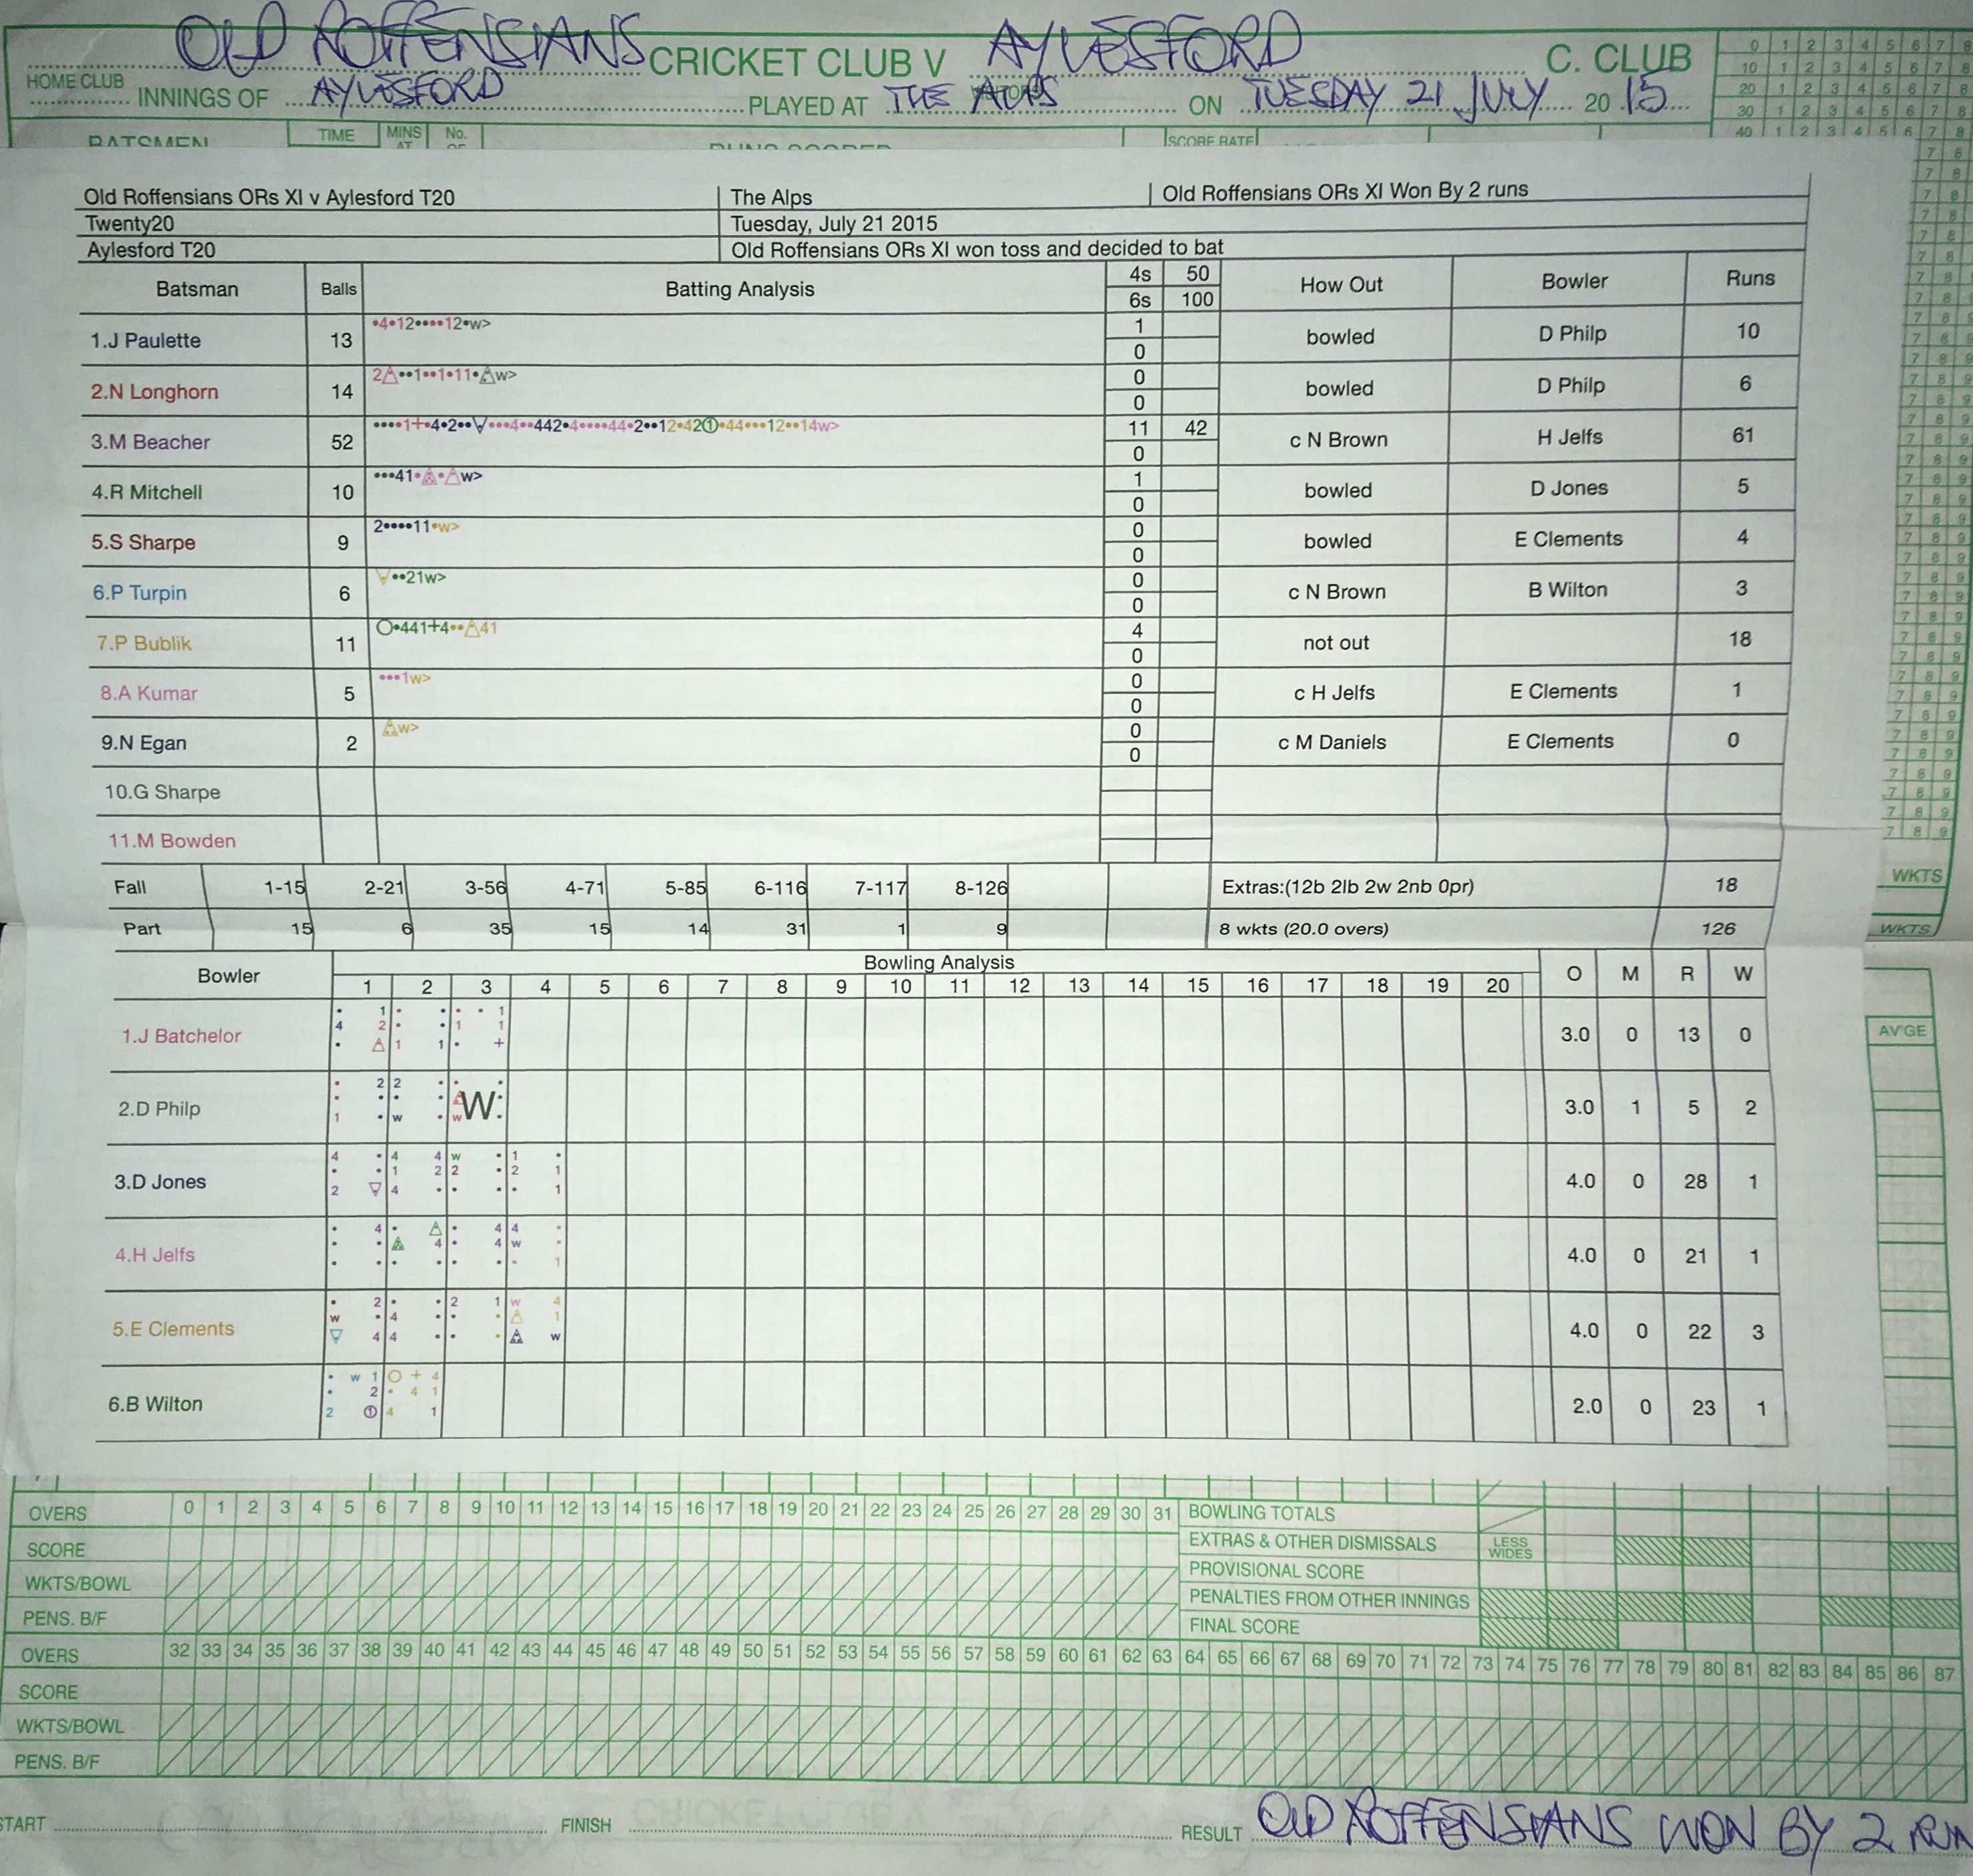 OLD ROFFENSIANS CRICKET CLUB V AYLESFORD C. CLUB
HOME CLUB
INNINGS OF AYLESFORD PLAYED AT THE ALPS ON TUESDAY 21 JULY 20 15
0 1 2 3 4 5 6 7 8
10 1 2 3 4 5 6 7 8
20 1 2 3 4 5 6 7 8
30 1 2 3 4 5 6 7 8
40 1 2 3 4 5 6 7 8
BATSMEN TIME MINS AT No. OF RUNS SCORED SCORE RATE
Old Roffensians ORs XI v Aylesford T20 The Alps Old Roffensians ORs XI Won By 2 runs
Twenty20 Tuesday, July 21 2015
Aylesford T20 Old Roffensians ORs XI won toss and decided to bat
Batsman Balls Batting Analysis 4s 50 How Out Bowler Runs
6s 100
1.J Paulette 13 •4•12••••12•w> 1 0 bowled D Philp 10
2.N Longhorn 14 2△••1••1•11•△w> 0 0 bowled D Philp 6
3.M Beacher 52 ••••1+•4•2••V•••4••442•4••••44•2••12•42①•44•••12••14w> 11 42 0 c N Brown H Jelfs 61
4.R Mitchell 10 •••41•△•△w> 1 0 bowled D Jones 5
5.S Sharpe 9 2••••11•w> 0 0 bowled E Clements 4
6.P Turpin 6 ▽••21w> 0 0 c N Brown B Wilton 3
7.P Bublik 11 O•441+4••△41 4 0 not out 18
8.A Kumar 5 •••1w> 0 0 c H Jelfs E Clements 1
9.N Egan 2 △w> 0 0 c M Daniels E Clements 0
10.G Sharpe
11.M Bowden
Fall 1-15 2-21 3-56 4-71 5-85 6-116 7-117 8-126 Extras:(12b 2lb 2w 2nb 0pr) 18
Part 15 6 35 15 14 31 1 9 8 wkts (20.0 overs) 126
WKTS
WKTS
Bowler Bowling Analysis O M R W
1 2 3 4 5 6 7 8 9 10 11 12 13 14 15 16 17 18 19 20
1.J Batchelor 3.0 0 13 0
AV'GE
2.D Philp 3.0 1 5 2
3.D Jones 4.0 0 28 1
4.H Jelfs 4.0 0 21 1
5.E Clements 4.0 0 22 3
6.B Wilton 2.0 0 23 1
OVERS 0 1 2 3 4 5 6 7 8 9 10 11 12 13 14 15 16 17 18 19 20 21 22 23 24 25 26 27 28 29 30 31 BOWLING TOTALS
SCORE EXTRAS & OTHER DISMISSALS LESS WIDES
WKTS/BOWL PROVISIONAL SCORE
PENS. B/F PENALTIES FROM OTHER INNINGS
FINAL SCORE
OVERS 32 33 34 35 36 37 38 39 40 41 42 43 44 45 46 47 48 49 50 51 52 53 54 55 56 57 58 59 60 61 62 63 64 65 66 67 68 69 70 71 72 73 74 75 76 77 78 79 80 81 82 83 84 85 86 87
SCORE
WKTS/BOWL
PENS. B/F
START FINISH RESULT OLD ROFFENSIANS WON BY 2 RUN